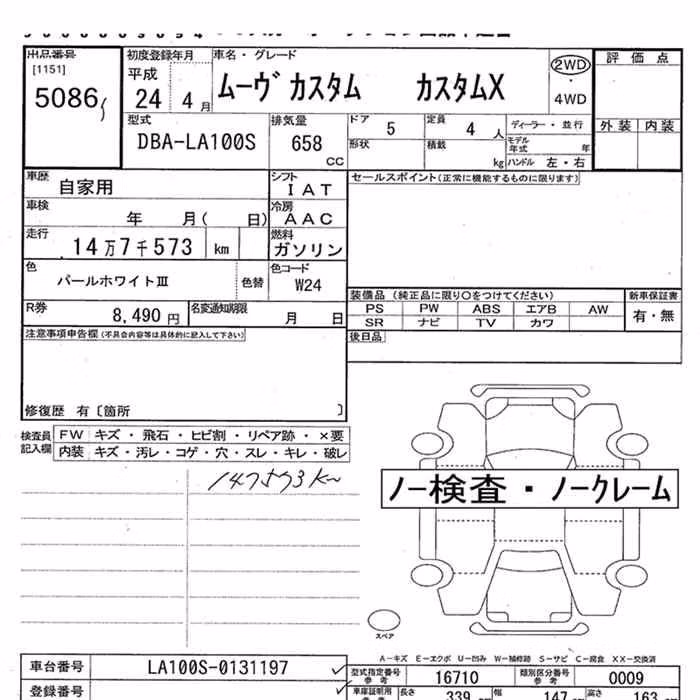 出品番号 初度登録年月 車名・グレード 評価点
[1151] 平成 ムーヴ カスタム カスタムX 2WD
5086 24 4 月 ・
4WD
型式 排気量 ドア 5 定員 4 人 ディーラー・並行 外装 内装
DBA-LA100S 658 CC 形状 積載 kg モデル年式 年
ハンドル 左・右
車歴 自家用 シフト IAT セールスポイント(正常に機能するものに限ります)
車検 年 月( 日) 冷房 AAC
走行 14万7千573 km 燃料 ガソリン
色 パールホワイトIII 色替 色コード W24
R券 8,490 円 名変通知期限 月 日
装備品 (純正品に限り○をつけてください) 新車保証書
PS PW ABS エアB AW 有・無
SR ナビ TV カワ
注意事項申告欄(不具合内容等は具体的に記入して下さい) 後日品
修復歴 有〔箇所 〕
検査員記入欄 FW キズ・飛石・ヒビ割・リペア跡・×要
内装 キズ・汚レ・コゲ・穴・スレ・キレ・破レ
147573km
ノー検査・ノークレーム
スペア
A-キズ E-エクボ U-凹み W-補修跡 S-サビ C-腐食 XX-交換済
車台番号 LA100S-0131197 型式指定番号 参考 16710 類別区分番号 参考 0009
登録番号 車庫証明用 長さ 339 幅 147 高さ 163